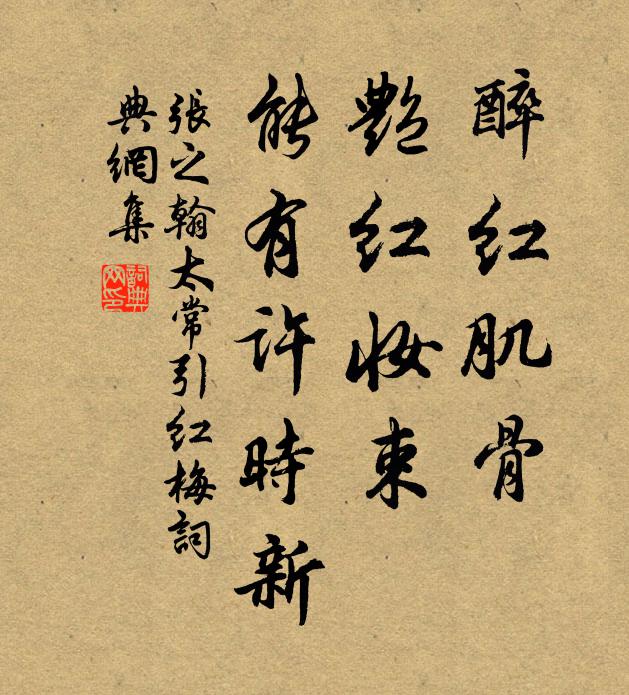 醉红肌骨
艷红妝束
能有許時新
張之翰太常引红梅詞
典網集
詞典网印